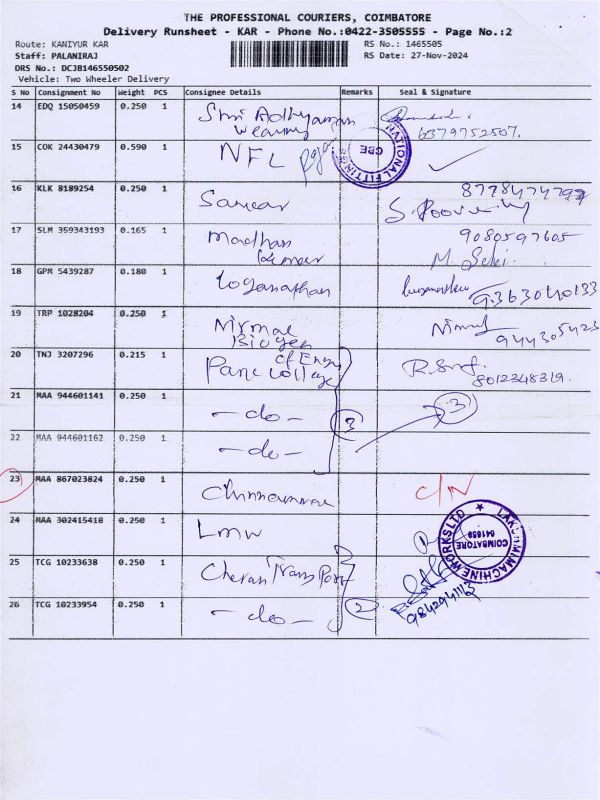 THE PROFESSIONAL COURIERS, COIMBATORE
Delivery Runsheet - KAR - Phone No.:0422-3505555 - Page No.:2
Route: KANIYUR KAR
RS No.: 1465505
Staff: PALANIRAJ
RS Date: 27-Nov-2024
DRS No.: DCJB146550502
Vehicle: Two Wheeler Delivery
S No Consignment No Weight PCS Consignee Details Remarks Seal & Signature
14 EDQ 15050459 0.250 1 Shri Adhyaman
6379752507.
15 COK 24430479 0.590 1 NFL
NATIONAL FITTINGS
CBE
16 KLK 8189254 0.250 1 Sarcar
17 SLM 359343193 0.165 1 Madhan
Kumar
9080597605
M. Selvi.
18 GPM 5439287 0.180 1 Loganathan
9363040133
19 TRP 1028204 0.250 1 Nirmal
944305423
20 TNJ 3207296 0.215 1 Park College of Eng
8012348319.
21 MAA 944601141 0.250 1 -do- 3
22 MAA 944601162 0.250 1 -do- 3
23 MAA 867023824 0.250 1 C/N
24 MAA 302415418 0.250 1 LMW
LAKSHMI MACHINE WORKS LTD
COIMBATORE
641659
25 TCG 10233638 0.250 1 Cheran Transport
26 TCG 10233954 0.250 1 -do- 2
9842941113